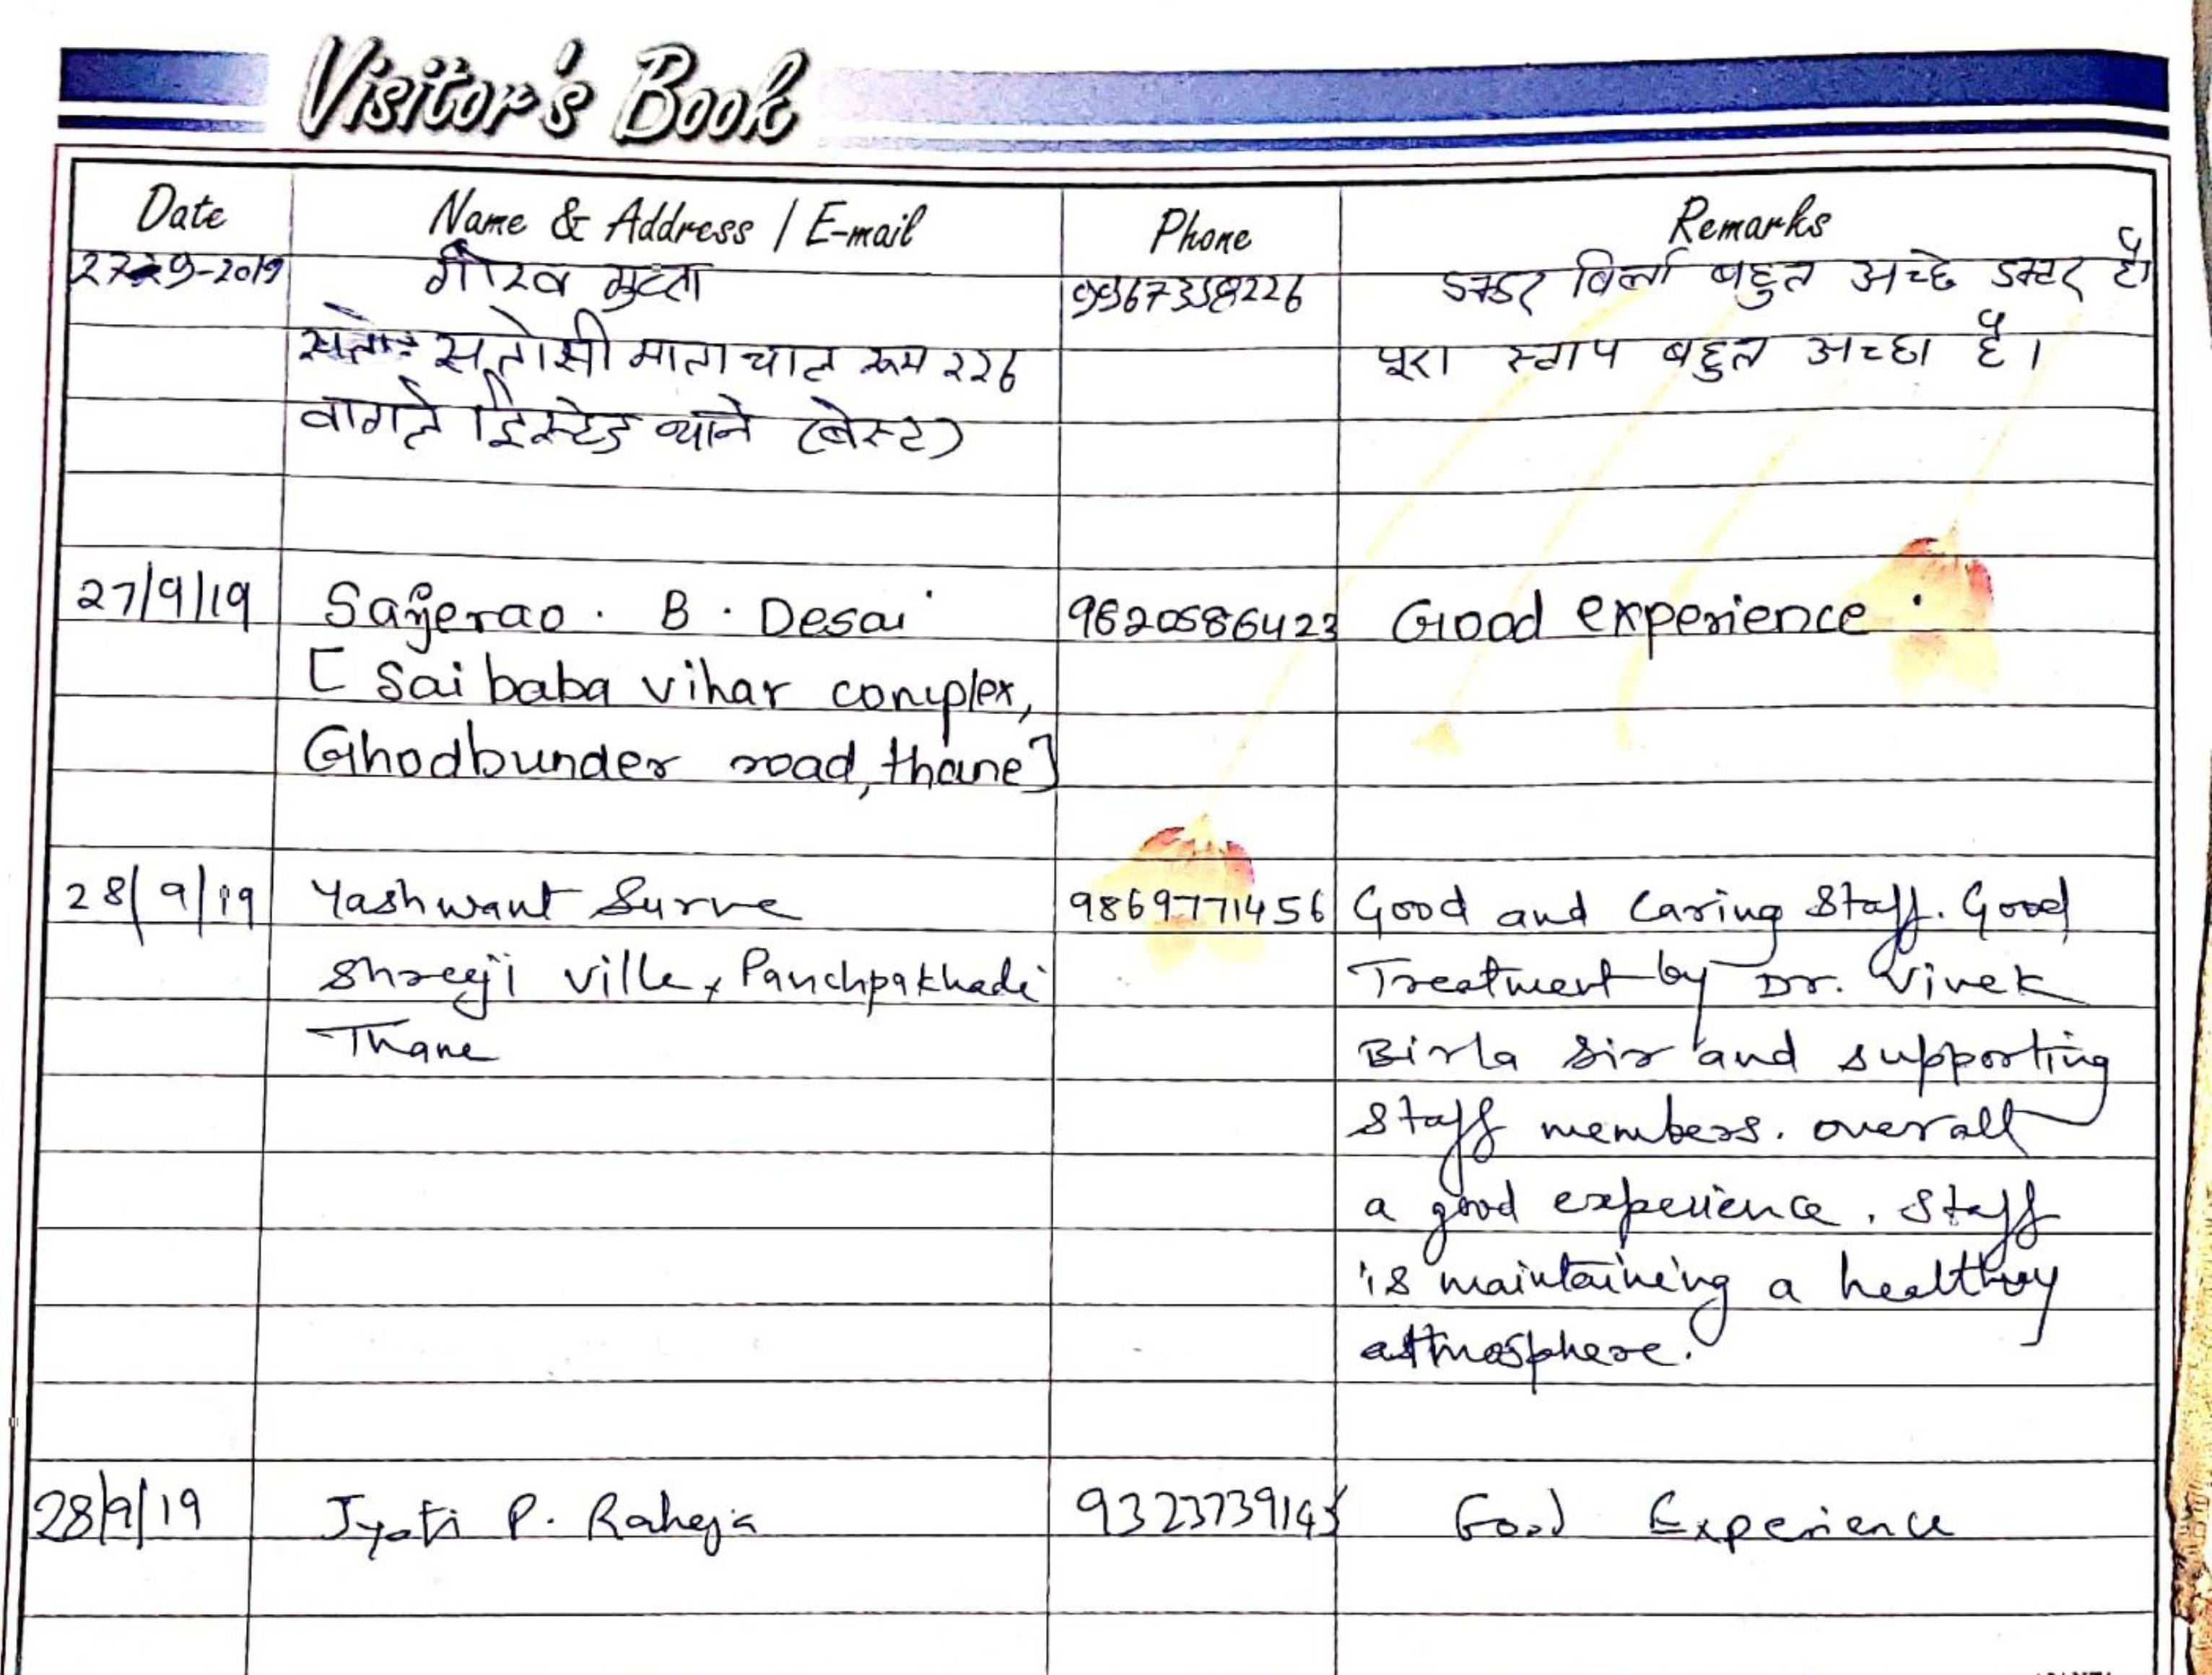 Visitor's Book
Date Name & Address / E-mail Phone Remarks
27-9-2019 गौरव गुप्ता 9967338226 डक्डर बिर्ला बहुत अच्छे डक्टर है।
सतोसी माता चाल रूम २२६ पूरा स्टाप बहुत अच्छा है।
वागले ईस्टेड थाने (बेस्ट)
27/9/19 Sayerao. B. Desai 9620586423 Good experience.
[ Sai baba vihar complex,
Ghodbunder road, thane]
28/9/19 Yashwant Surve 9869771456 Good and Caring Staff. Good
Shreeji Ville, Panchpakhadi Treatment by Dr. Vivek
Thane Birla Sir and supporting
Staff members. overall
a good experience. Staff
is maintaining a healthy
atmosphere.
28/9/19 Jyoti P. Raheja Good Experience